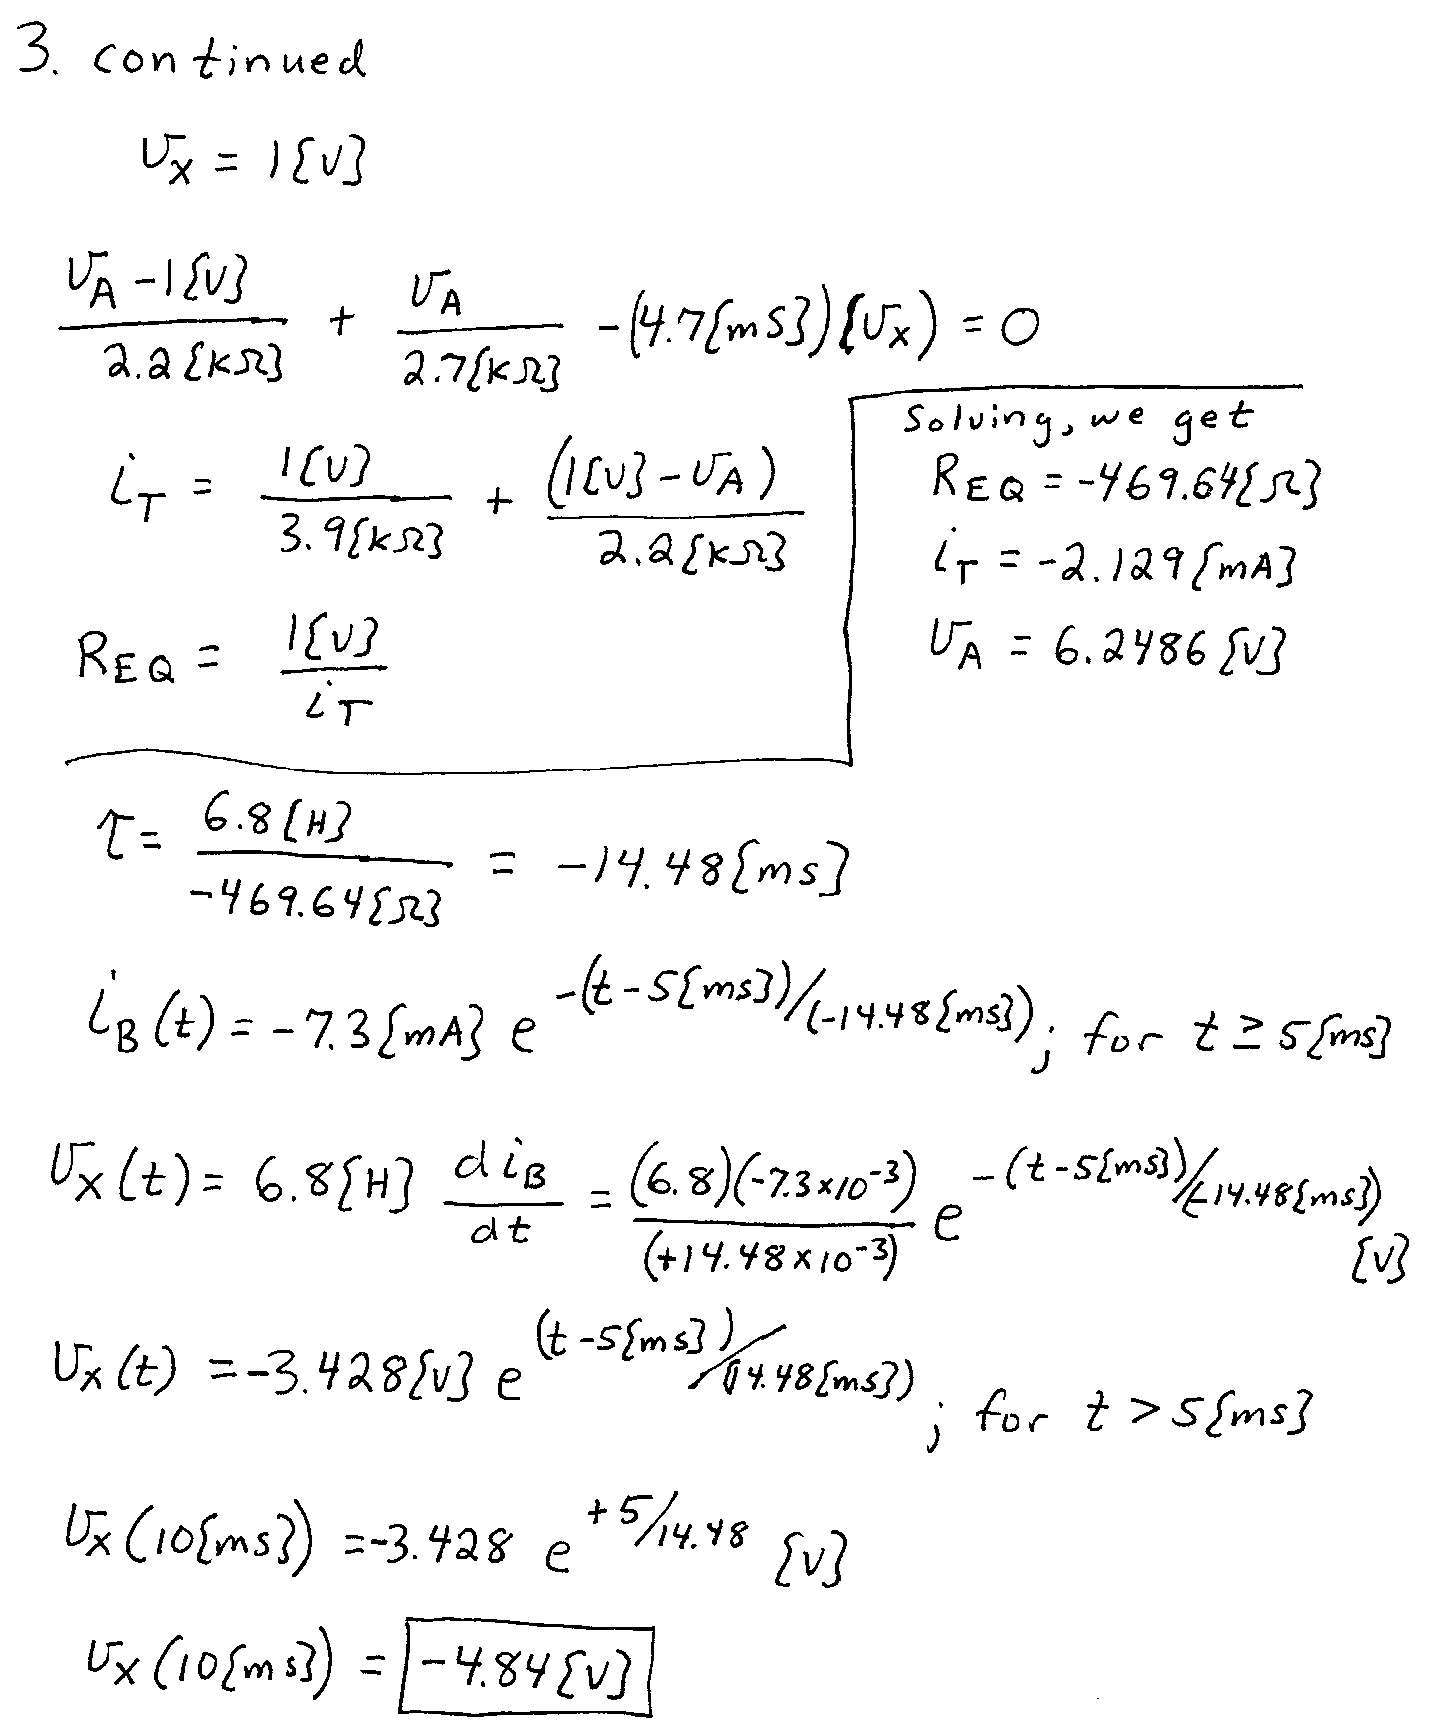 3. continued
v_X = 1{V}
(v_A - 1{V}) / 2.2{kΩ} + v_A / 2.7{kΩ} - (4.7{mS})(v_X) = 0
i_T = 1{V} / 3.9{kΩ} + (1{V} - v_A) / 2.2{kΩ}
R_EQ = 1{V} / i_T
Solving, we get
R_EQ = -469.64{Ω}
i_T = -2.129{mA}
v_A = 6.2486{V}
τ = 6.8{H} / -469.64{Ω} = -14.48{ms}
i_B(t) = -7.3{mA} e^{-(t-5{ms})/(-14.48{ms})}; for t ≥ 5{ms}
v_X(t) = 6.8{H} di_B/dt = (6.8)(-7.3×10^-3) / (+14.48×10^-3) e^{-(t-5{ms})/(-14.48{ms})} {V}
v_X(t) = -3.428{V} e^{(t-5{ms})/(14.48{ms})}; for t > 5{ms}
v_X(10{ms}) = -3.428 e^{+5/14.48} {V}
v_X(10{ms}) = -4.84{V}